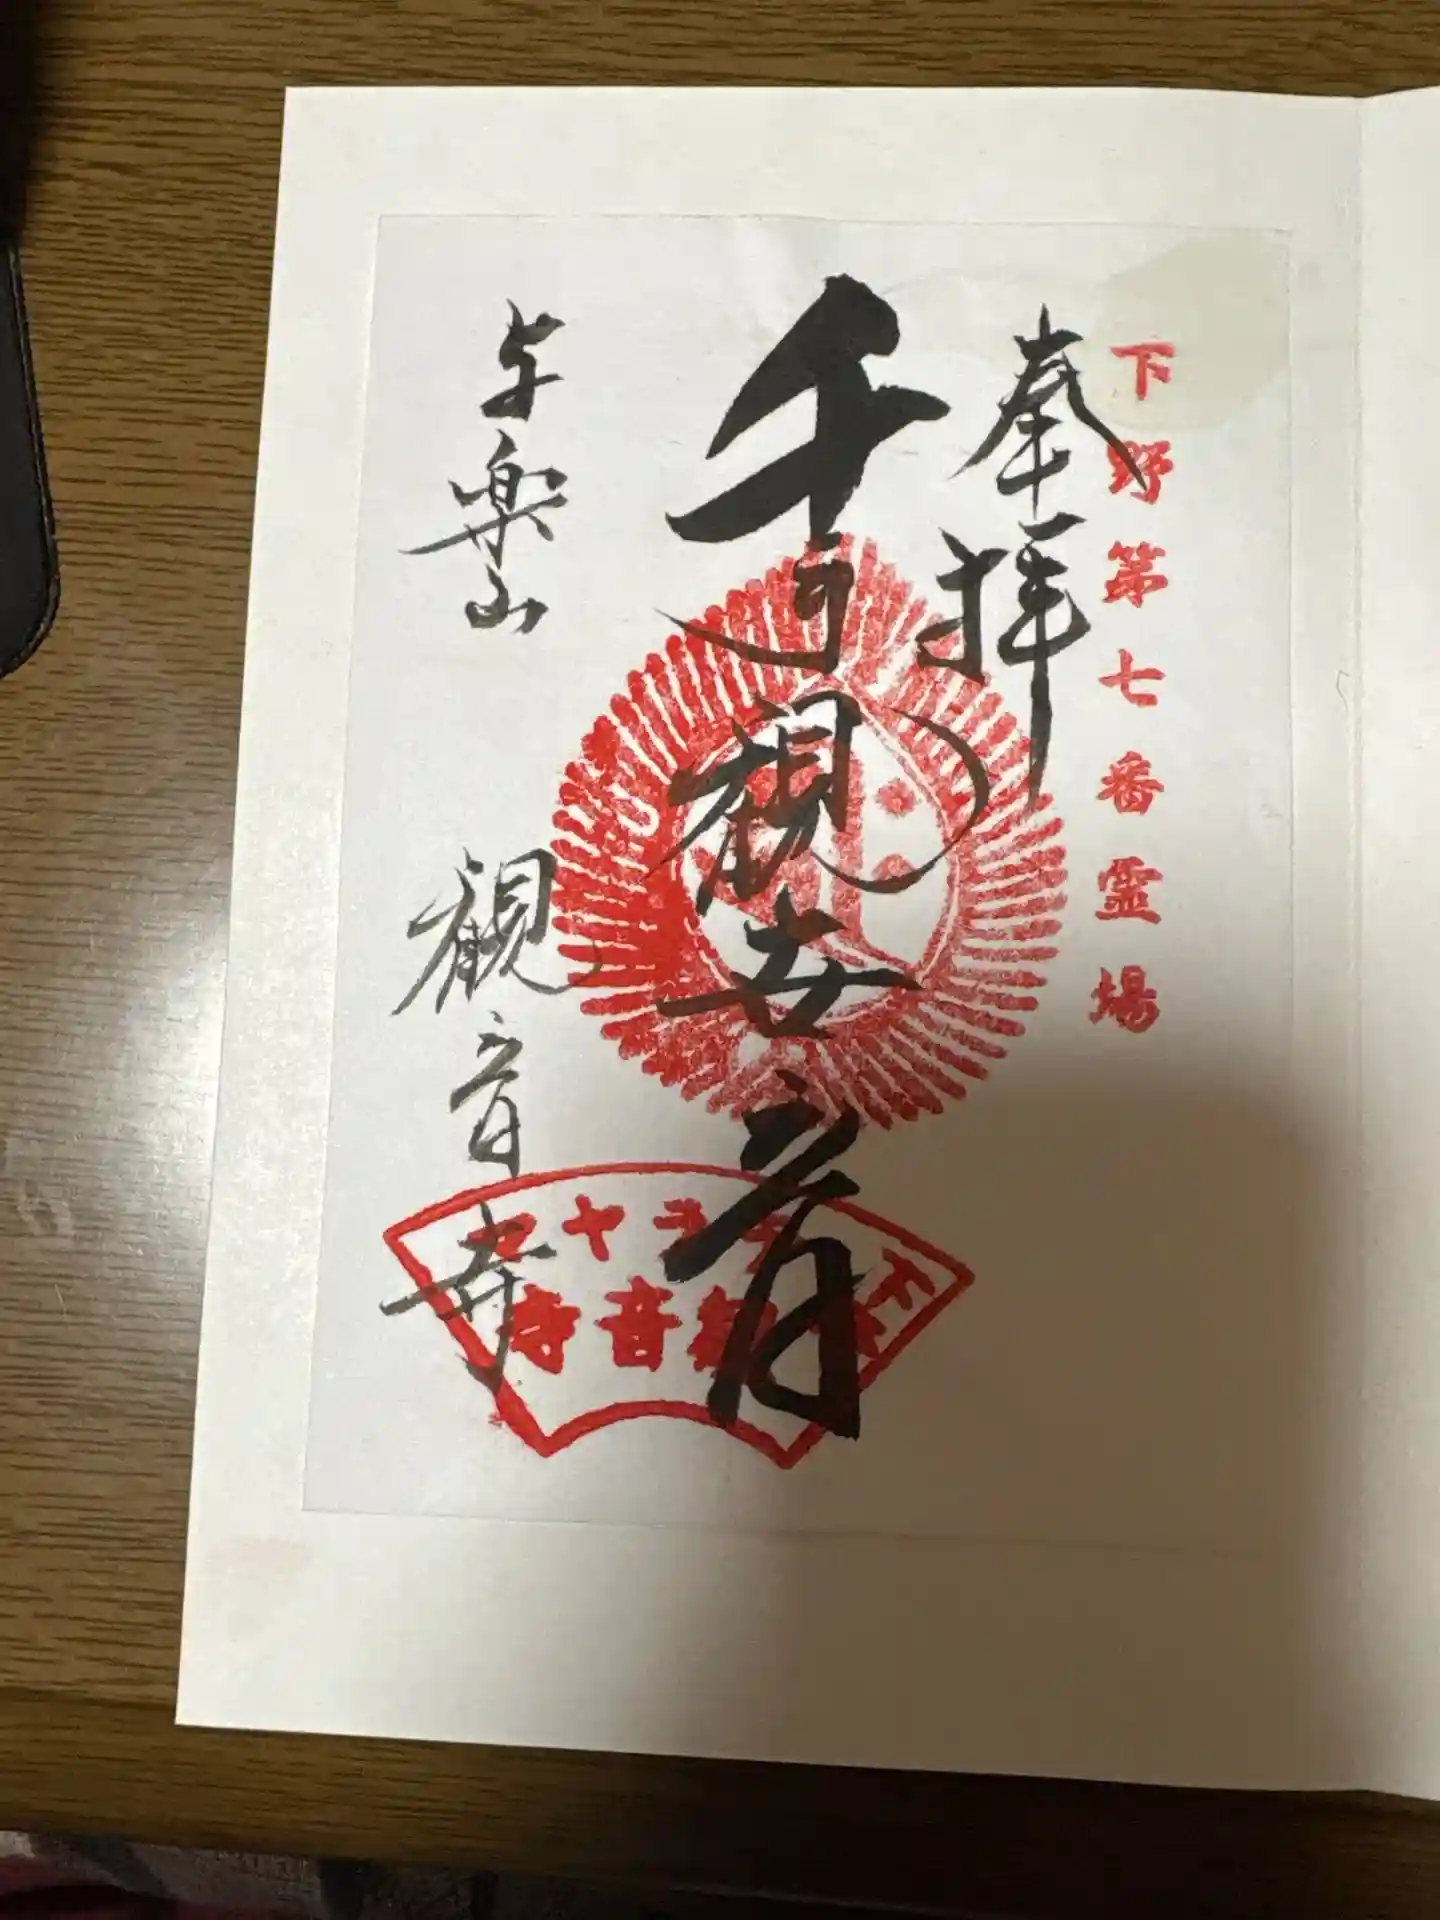 下野第七番霊場
奉拝
千手観世音
与楽山
観音寺
観音寺